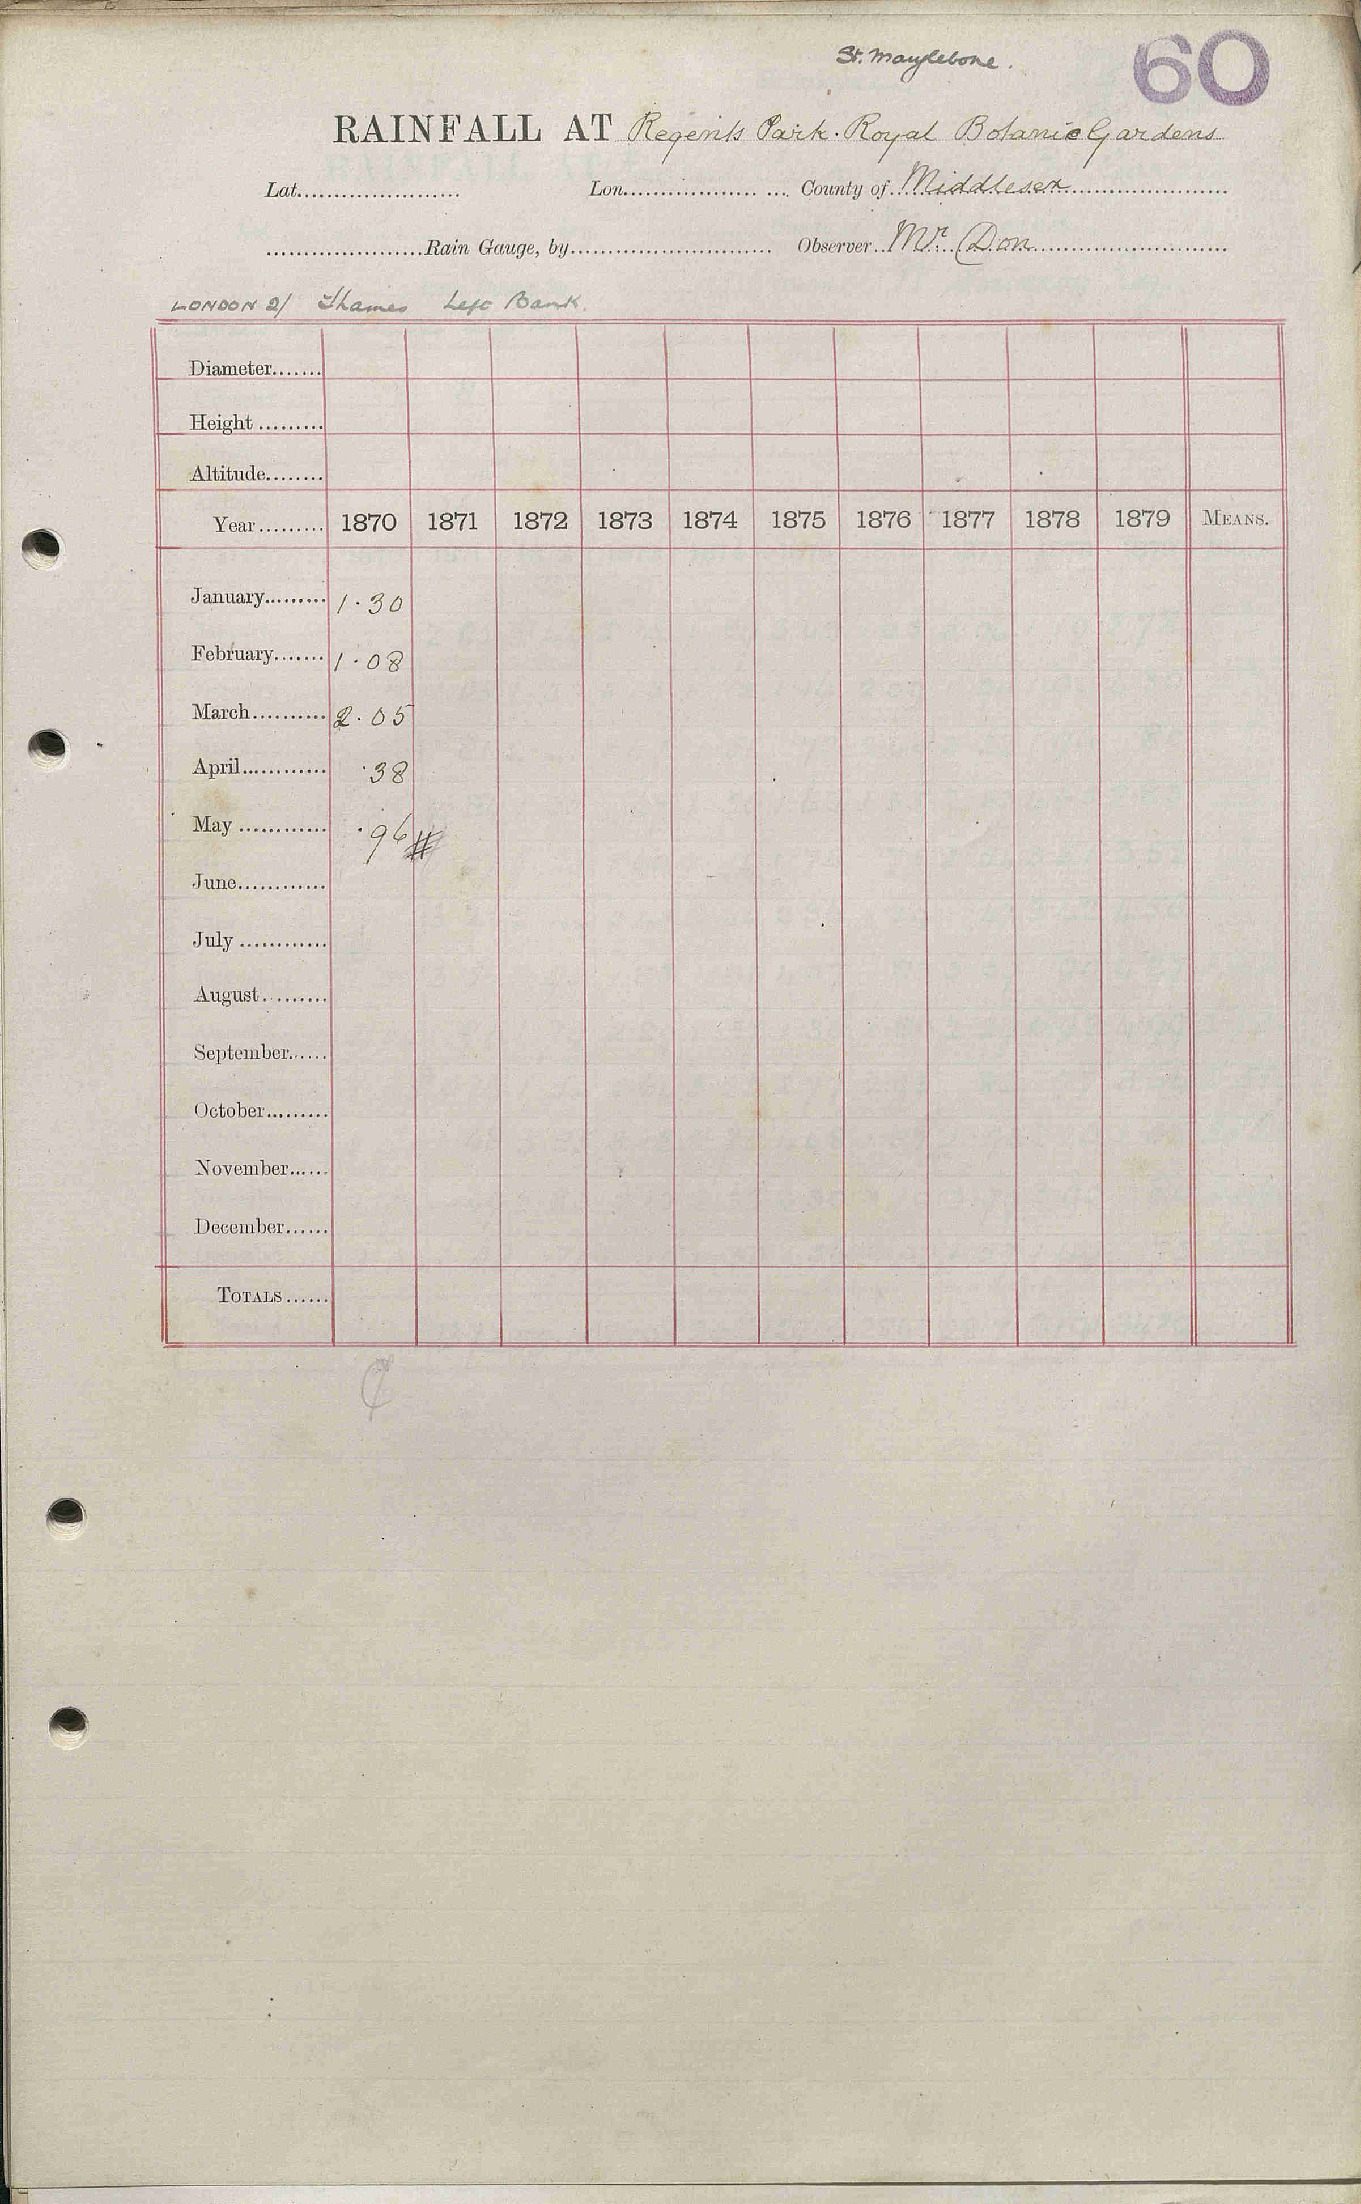 St. Marylebone.
60
RAINFALL AT Regents Park. Royal Botanic Gardens
Lat...................... Lon.................. .... County of Middlesex
......................Rain Gauge, by............................ Observer Mr. Don
LONDON 2/ Thames Left Bank.
Diameter.......
Height .........
Altitude........
Year......... 1870 1871 1872 1873 1874 1875 1876 1877 1878 1879 MEANS.
January......... 1.30
February....... 1.08
March.......... 2.05
April............ .38
May ............ .96 #
June............
July ............
August.........
September......
October.........
November......
December......
TOTALS......